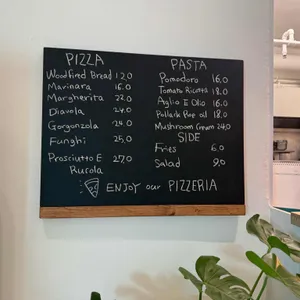 PIZZA
Woodfired Bread 12.0
Marinara 16.0
Margherita 22.0
Diavola 24.0
Gorgonzola 24.0
Funghi 25.0
Prosciutto E 27.0
Rucola
PASTA
Pomodoro 16.0
Tomato Ricotta 18.0
Aglio E Olio 16.0
Pollack Roe oil 18.0
Mushroom Cream 24.0
SIDE
Fries 6.0
Salad 9.0
ENJOY our PIZZERIA